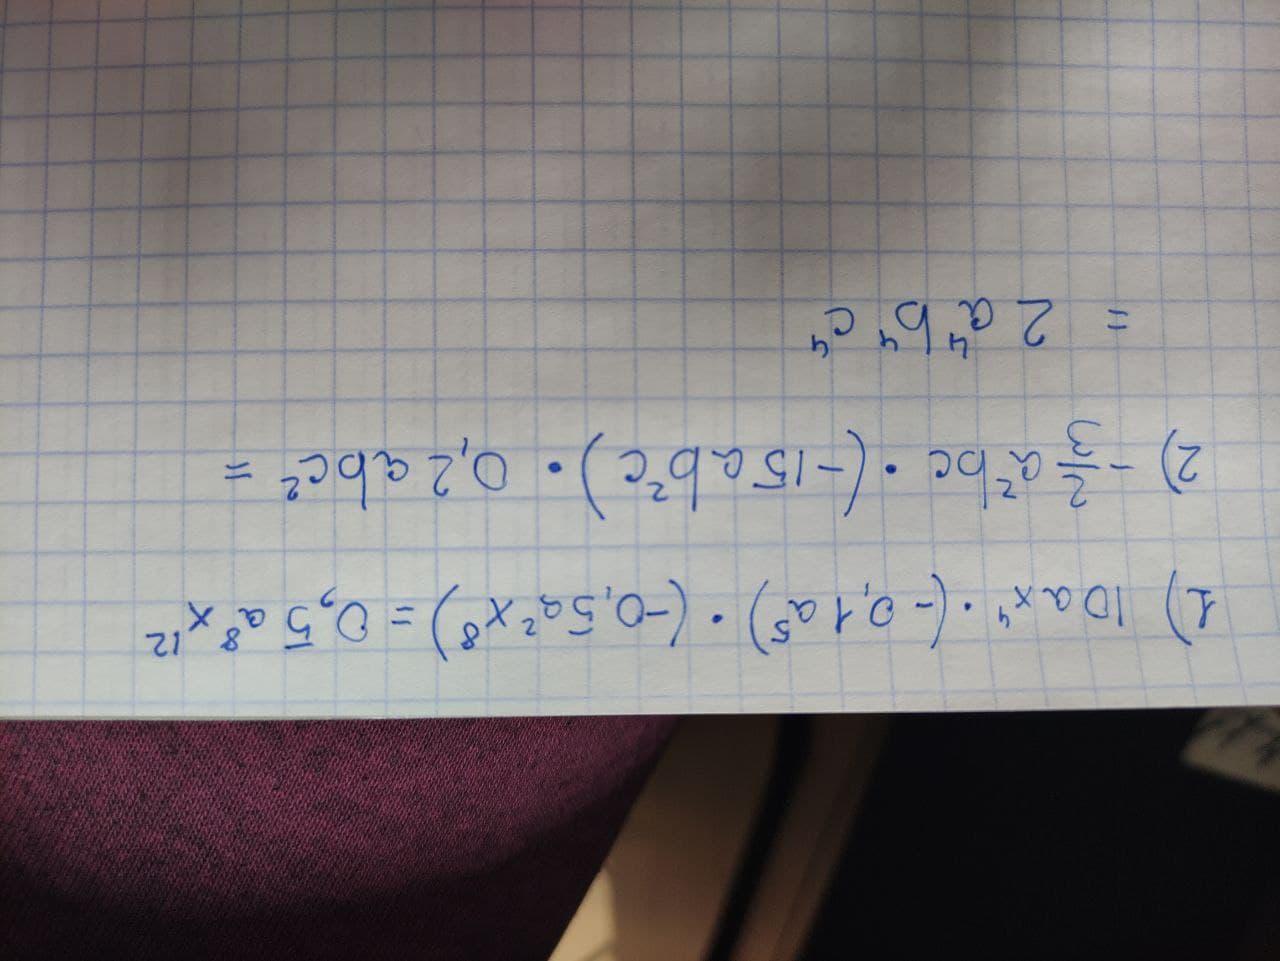 1) 10ax⁴ · (-0,1a⁵) · (-0,5a²x⁸) = 0,5a⁸x¹²
2) -2/3 a²bc · (-15ab²c) · 0,2abc² =
= 2a⁴b⁴c⁴